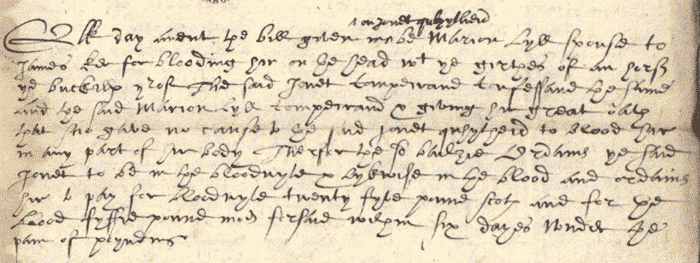 on Jonet quhytheid
Elk day anent the bill given in be Marion Lyll spouse to
James Ker for blooding hir on he head wt ye girthes of an horss
ye buckills yrof The said Jonet Compeirand Confessand the same
and the said Marion Lyll Compeirand & giving hir great oath
that sho gave no cause to the said Jonet quhytheid to blood hir
in any part of hir body Therfor the sd bailzie Ordains ye said
Jonet to be in the bloodwyte & lykwise in the blood and ordains
hir to pay for bloodwyte twentie fyve pound scots and for the
blood fyftie pound mon forsaid within six dayes under the
pain of poynding